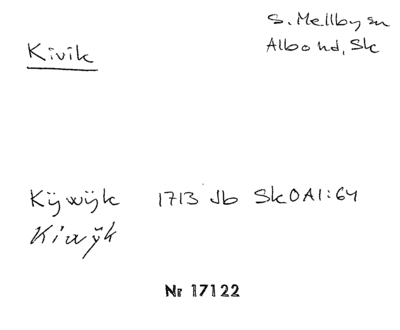 Kivik
S. Mellby sn
Albo hd, Sk
Kÿwÿk 1713 Jb SkOAI:64
Kiwÿk
Nr 17122